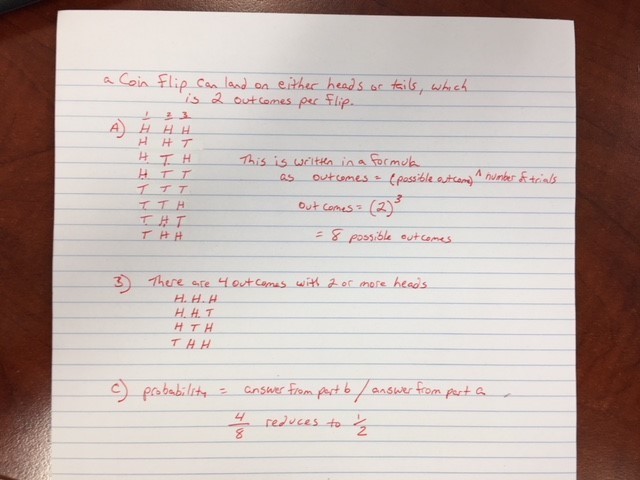 a Coin Flip can land on either heads or tails, which
is 2 outcomes per flip.
1 2 3
A) H H H
H H T
H T H
H T T
T T T
T T H
T H T
T H H
This is written in a formula
as outcomes = (possible outcome) ^ number of trials
outcomes = (2)³
= 8 possible outcomes
B) There are 4 outcomes with 2 or more heads
H. H. H
H. H. T
H T H
T H H
C) probability = answer from part b / answer from part a
4/8 reduces to 1/2